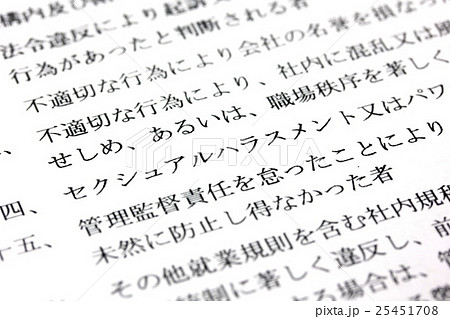 構内及び
法令違反により起訴
行為があったと判断される者
不適切な行為により会社の名誉を損な
不適切な行為により、社内に混乱又は
せしめ、あるいは、職場秩序を著しく
セクシュアルハラスメント又はパワ
四、
管理監督責任を怠ったことにより
十五、
未然に防止し得なかった者
その他就業規則を含む社内規
に著しく違反し、前
る場合は、
PIXTA
pixta.jp - 25451708